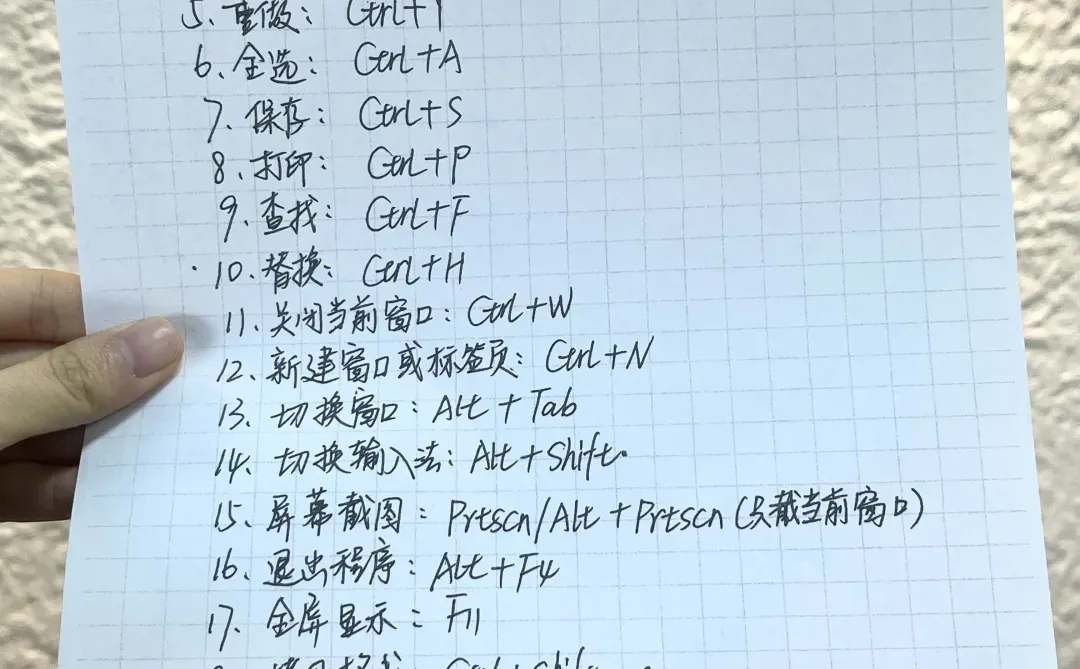 5、重做：Ctrl+Y
6、全选：Ctrl+A
7、保存：Ctrl+S
8、打印：Ctrl+P
9、查找：Ctrl+F
10、替换：Ctrl+H
11、关闭当前窗口：Ctrl+W
12、新建窗口或标签页：Ctrl+N
13、切换窗口：Alt+Tab
14、切换输入法：Alt+Shift
15、屏幕截图：Prtscn/Alt+Prtscn(只截当前窗口)
16、退出程序：Alt+F4
17、全屏显示：F11